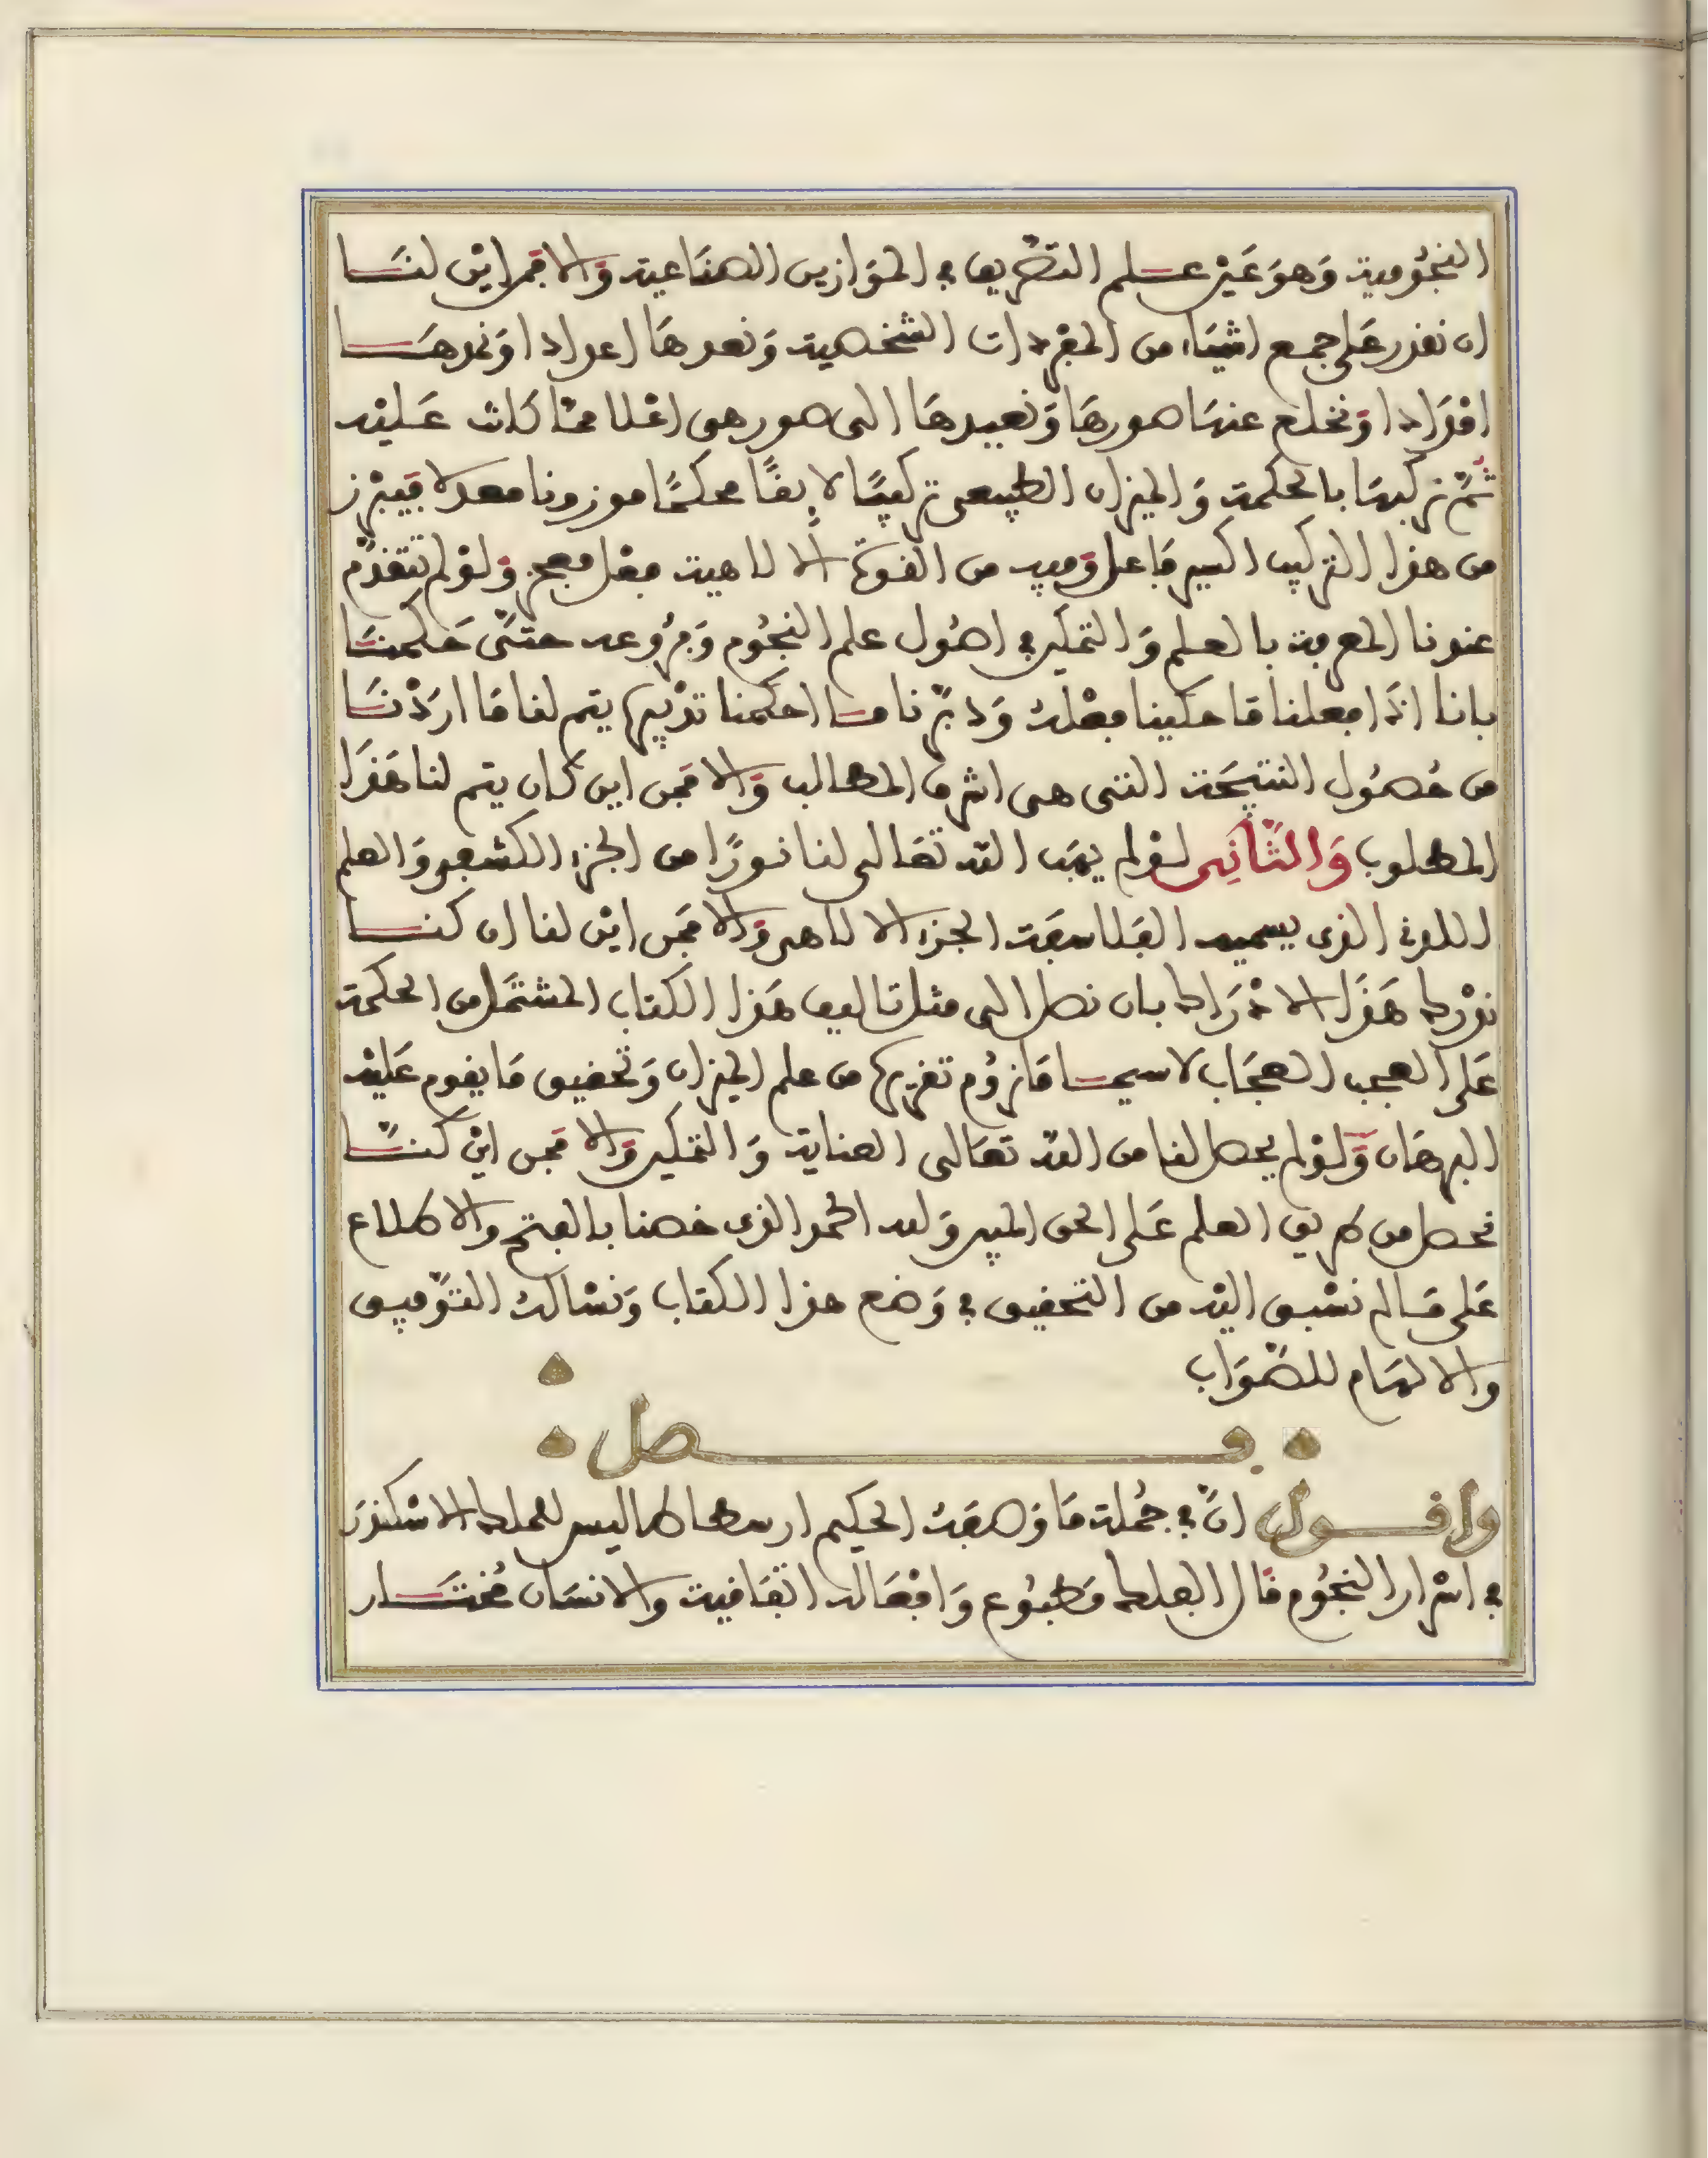 النجومية وهو غير علم التصريف في الموازين الصناعية والا فمن اين لنا
ان نقدر على جمع اشياء من المفردات الشخصية ونعدها اعدادا ونمدها
افرادا ونخلع عنها صورها ونعيدها الى صور هى اعلا مما كانت عليه
ثم نركبها بالحكمة والميزان الطبيعى تركيبا لايقا محكما موزونا معدلا فيبرز
من هذا التركيب اكسير فاعل وفيه من القوة الالاهية فعل معجز ولو لم تتقدم
عندنا المعرفة بالعلم والتمكين في اصول علم النجوم وفروعه حتى حكمنا
بانا اذا فعلنا ما حكينا فعله ودبرنا ما احكمنا تدبيره يتم لنا ما اردنا
من حصول النتيجة التى هى اشرف المطالب والا فمن اين كان يتم لنا هذا
المطلوب والثانى لو لم يهب الله تعالى لنا نورا من الجزء الكشفى والعلم
اللدنى الذى يسميه الفلاسفة الجزء الالاهى والا فمن اين لنا ان كنا
ندرك هذا الادراك بان نصل الى مثل تاليف هذا الكتاب المشتمل من الحكمة
على العجب العجاب لاسيما ما نروم تقريره من علم الميزان وتحقيق ما يقوم عليه
البرهان ولو لم يحصل لنا من الله تعالى العناية والتمكين والا فمن اين كنا
نحصل من طريق العلم على الحق المبين وله الحمد الذى خصنا بالفتح والاطلاع
على ما لم نسبق اليه من التحقيق في وضع هذا الكتاب ونساله التوفيق
والالهام للصواب
فصل
واقول ان في جملة ما وصفه الحكيم ارسطاطاليس للملك الاسكندر
في اسرار النجوم قال الفلك مطبوع وافعاله اتفاقية والانسان مختار